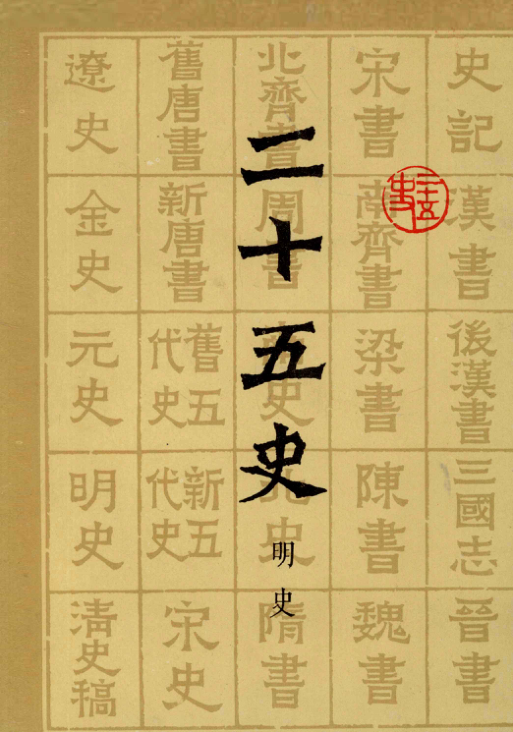 二十五史
明史
二十五史
史記
漢書
後漢書
三國志
晉書
宋書
南齊書
梁書
陳書
魏書
北齊書
周書
南史
北史
隋書
舊唐書
新唐書
舊五代史
新五代史
宋史
遼史
金史
元史
明史
清史稿